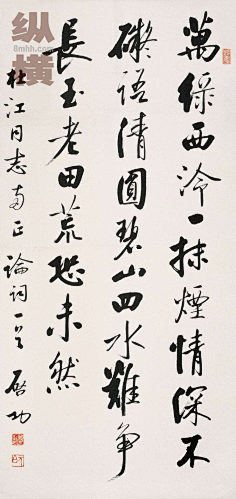 萬綠西泠一抹煙情深不
礙語清圓碧山四水難爭
長玉老田荒恐未然
杜江同志雨正 論詞一首 啟功
纵横
8mhh.com